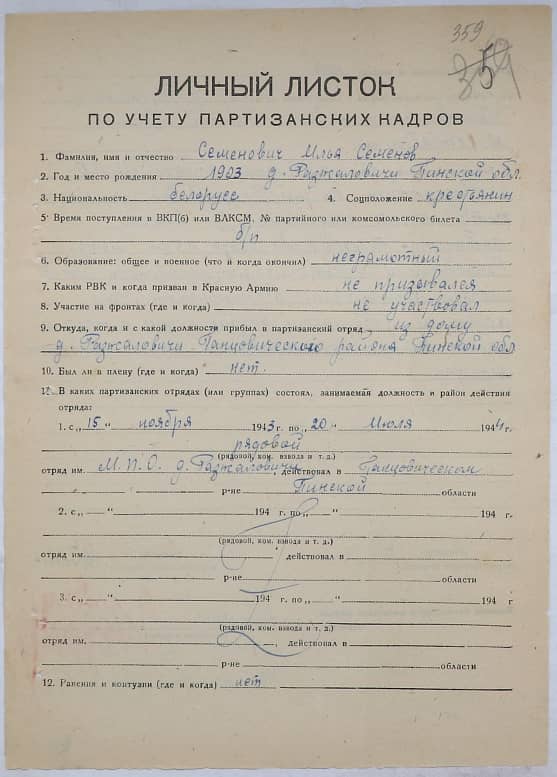 359
ЛИЧНЫЙ ЛИСТОК
ПО УЧЕТУ ПАРТИЗАНСКИХ КАДРОВ
1. Фамилия, имя и отчество Семенович Илья Семенов
2. Год и место рождения 1903 д. Разжаловичи Пинской обл.
3. Национальность белорусс 4. Соцположение крестьянин
5. Время поступления в ВКП(б) или ВЛКСМ, № партийного или комсомольского билета
б/п
6. Образование: общее и военное (что и когда окончил) неграмотный
7. Каким РВК и когда призван в Красную Армию не призывался
8. Участие на фронтах (где и когда) не участвовал
9. Откуда, когда и с какой должности прибыл в партизанский отряд из дому
д. Разжаловичи Ганцовического района Пинской обл
10. Был ли в плену (где и когда) нет.
11. В каких партизанских отрядах (или группах) состоял, занимаемая должность и район действия
отряда:
1. с „15 " ноября 1943 г. по „20 " Июля 1944 г.
рядовой
(рядовой, ком. взвода и т. д.)
отряд им. М.П.О. д. Разжаловичи, действовал в Ганцовическом
р-не Пинской области
2. с „ " 194 г. по „ " 194 г.
(рядовой, ком. взвода и т. д.)
отряд им. действовал в
р-не области
3. с „ " 194 г. по „ " 194 г
(рядовой, ком. взвода и т. д.)
отряд им. , действовал в
р-не области
12. Ранения и контузии (где и когда) нет